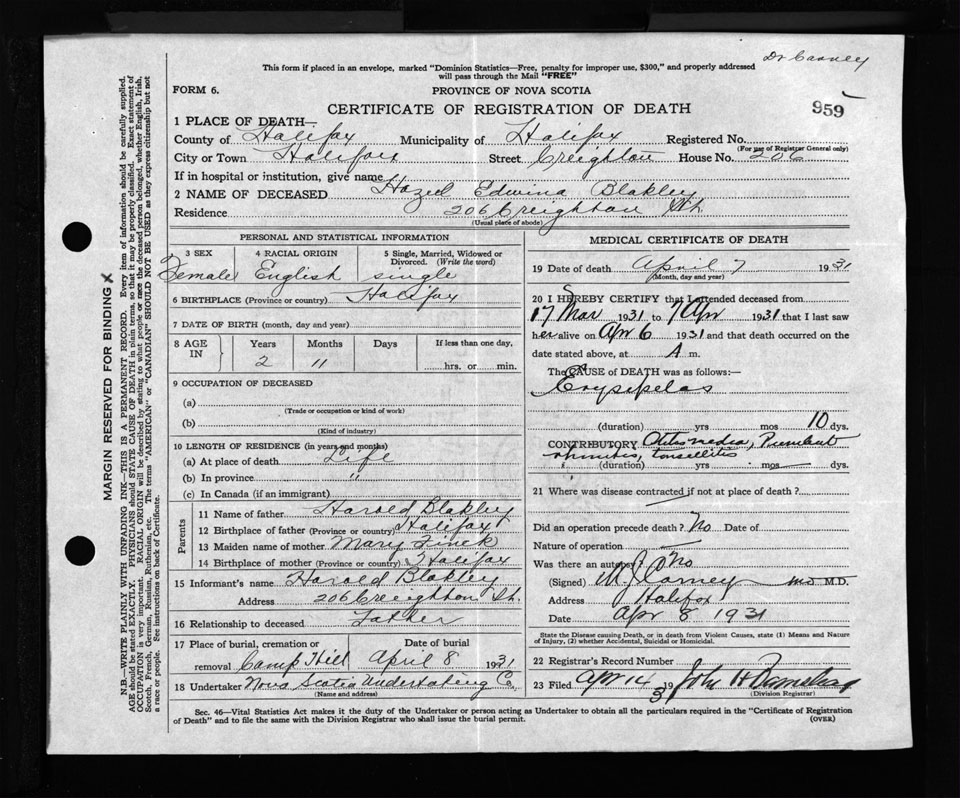 This form if placed in an envelope, marked "Dominion Statistics—Free, penalty for improper use, $300," and properly addressed
will pass through the Mail "FREE"
FORM 6.
PROVINCE OF NOVA SCOTIA
959
CERTIFICATE OF REGISTRATION OF DEATH
1 PLACE OF DEATH—
County of Halifax Municipality of Halifax Registered No.
(For use of Registrar General only)
City or Town Halifax Street Creighton House No. 206
If in hospital or institution, give name
2 NAME OF DECEASED Hazel Edwina Blakley
Residence 206 Creighton St.
(Usual place of abode)
PERSONAL AND STATISTICAL INFORMATION
3 SEX Female
4 RACIAL ORIGIN English
5 Single, Married, Widowed or Divorced. (Write the word) single
6 BIRTHPLACE (Province or country) Halifax
7 DATE OF BIRTH (month, day and year)
8 AGE IN Years 2 Months 11 Days If less than one day, hrs. or min.
9 OCCUPATION OF DECEASED
(a)
(Trade or occupation or kind of work)
(b)
(Kind of industry)
10 LENGTH OF RESIDENCE (in years and months)
(a) At place of death Life
(b) In province "
(c) In Canada (if an immigrant)
Parents
11 Name of father Harold Blakley
12 Birthplace of father (Province or country) Halifax
13 Maiden name of mother Mary
14 Birthplace of mother (Province or country) Halifax
15 Informant's name Harold Blakley
Address 206 Creighton St.
16 Relationship to deceased Father
17 Place of burial, cremation or removal Camp Hill Date of burial April 8 1931
18 Undertaker Nova Scotia Undertaking Co.
(Name and address)
MEDICAL CERTIFICATE OF DEATH
19 Date of death April 7 1931
(Month, day and year)
20 I HEREBY CERTIFY that I attended deceased from
17 Mar 1931 to 7 Apr 1931 that I last saw
her alive on Apr 6 1931 and that death occurred on the
date stated above, at A m.
The CAUSE of DEATH was as follows:—
Erysipelas
(duration) yrs mos 10 dys.
CONTRIBUTORY Otitis media, Purulent
rhinitis, tonsillitis
(duration) yrs mos dys.
21 Where was disease contracted if not at place of death?
Did an operation precede death? No Date of
Nature of operation
Was there an autopsy? No
(Signed) M J Carney MD M.D.
Address Halifax
Date Apr 8 1931
State the Disease causing Death, or in death from Violent Causes, state (1) Means and Nature
of Injury, (2) whether Accidental, Suicidal or Homicidal.
22 Registrar's Record Number
23 Filed Apr 14 1931 John H
(Division Registrar)
Sec. 46—Vital Statistics Act makes it the duty of the Undertaker or person acting as Undertaker to obtain all the particulars required in the "Certificate of Registration
of Death" and to file the same with the Division Registrar who shall issue the burial permit.
(OVER)
MARGIN RESERVED FOR BINDING
N.B.—WRITE PLAINLY WITH UNFADING INK—THIS IS A PERMANENT RECORD. Every item of information should be carefully supplied.
AGE should be stated EXACTLY. PHYSICIANS should STATE CAUSE OF DEATH in plain terms, so that it may be properly classified. Exact statement of
OCCUPATION is very important. RACIAL ORIGIN will be described by stating to what people or race the deceased person belonged, whether English, Irish,
Scotch, French, German, Russian, Ruthenian, etc. The terms "AMERICAN" or "CANADIAN" SHOULD NOT BE USED as they express citizenship but not
a race or people. See instructions on back of Certificate.
Dr Carney